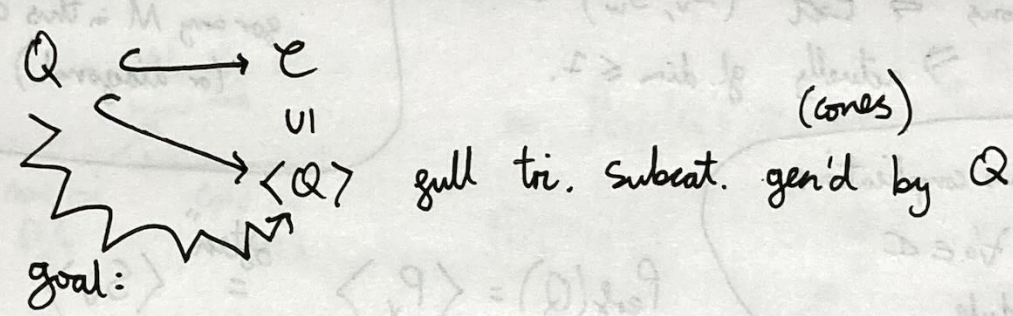 Q ↪ C
(cones)
∪I
<Q> full tri. subcat. gen'd by Q
goal: